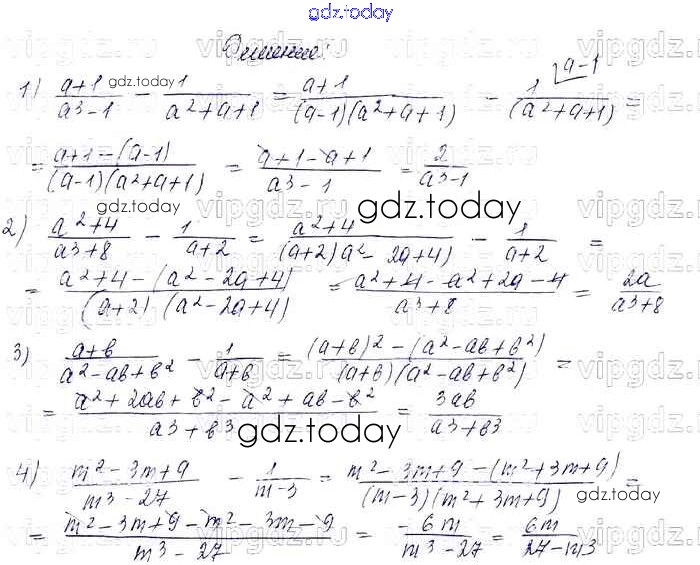 gdz.today
Решение:
1) (a+1)/(a³-1) - 1/(a²+a+1) = (a+1)/((a-1)(a²+a+1)) - 1^(a-1)/(a²+a+1) =
= (a+1-(a-1))/((a-1)(a²+a+1)) = (a+1-a+1)/(a³-1) = 2/(a³-1)
2) (a²+4)/(a³+8) - 1/(a+2) = (a²+4)/((a+2)(a²-2a+4)) - 1/(a+2) =
= (a²+4-(a²-2a+4))/((a+2)(a²-2a+4)) = (a²+4-a²+2a-4)/(a³+8) = 2a/(a³+8)
3) (a+b)/(a²-ab+b²) - 1/(a+b) = ((a+b)²-(a²-ab+b²))/((a+b)(a²-ab+b²)) =
= (a²+2ab+b²-a²+ab-b²)/(a³+b³) = 3ab/(a³+b³)
4) (m²-3m+9)/(m³-27) - 1/(m-3) = (m²-3m+9-(m²+3m+9))/((m-3)(m²+3m+9)) =
= (m²-3m+9-m²-3m-9)/(m³-27) = -6m/(m³-27) = 6m/(27-m³)